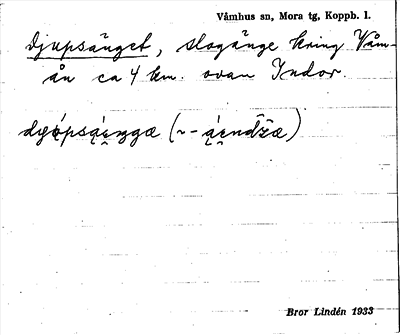 Våmhus sn, Mora tg, Koppb. l.
Djupsänget, slogänge kring Våm-
ån ca 4 km. ovan Indor.
(~-
Bror Lindén 1933